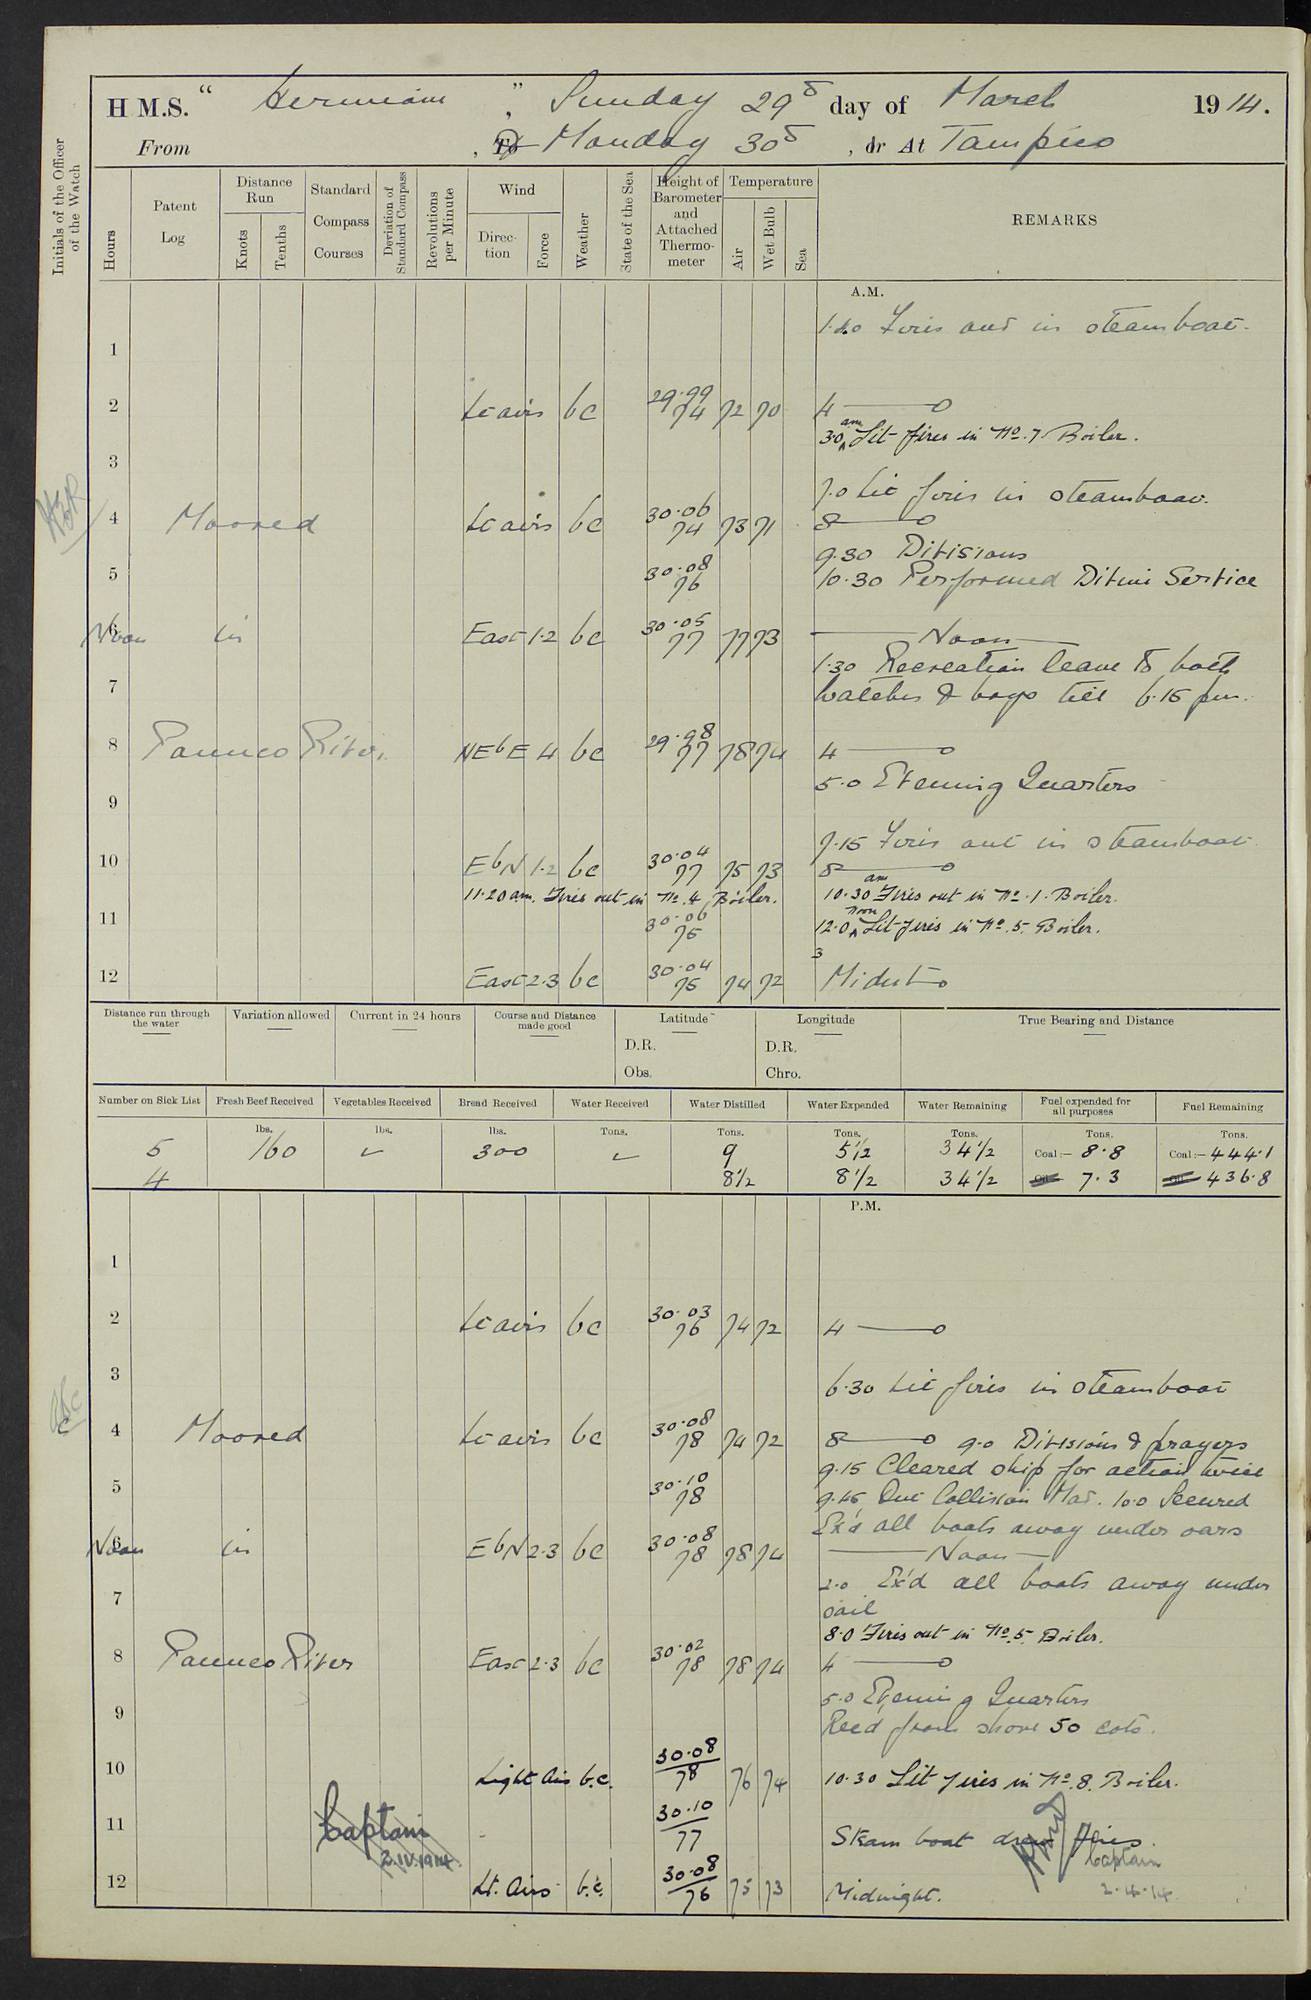 H M.S. " Hermione " Sunday 29th day of March 1914.
From , To & Monday 30th , or At Tampico
Initials of the Officer of the Watch
Hours
Patent Log
Distance Run
Knots
Tenths
Standard Compass Courses
Deviation of Standard Compass
Revolutions per Minute
Wind
Direction
Force
Weather
State of the Sea
Height of Barometer and Attached Thermometer
Temperature
Air
Wet Bulb
Sea
REMARKS
A.M.
1.40 Fires out in steamboat.
1
2 Lt airs bc 29.99 74 72 70 4
3.0 am Lit fires in No. 7 Boiler.
3
7.0 Lit fires in steamboat.
4 Moored Lt airs bc 30.06 74 73 71 8
9.30 Divisions
5 30.08 76 10.30 Performed Divine Service
6 Noon in East 1.2 bc 30.05 77 77 73 Noon
1.30 Recreation leave to both
7 watches & boys till 6.15 pm.
8 Panuco River NEbE 4 bc 29.98 77 78 74 4
5.0 Evening Quarters
9
7.15 Fires out in steamboat
10 EbN 1.2 bc 30.04 77 75 73 8
11.20 am. Fires out in No. 4 Boiler. 10.30 am Fires out in No. 1. Boiler.
11 30.06 75 12.0 noon Lit fires in No. 5. Boiler.
3
12 East 2.3 bc 30.04 75 74 72 Midnt
Distance run through the water
Variation allowed
Current in 24 hours
Course and Distance made good
Latitude
D.R.
Obs.
Longitude
D.R.
Chro.
True Bearing and Distance
Number on Sick List
Fresh Beef Received
Vegetables Received
Bread Received
Water Received
Water Distilled
Water Expended
Water Remaining
Fuel expended for all purposes
Fuel Remaining
lbs. lbs. lbs. Tons. Tons. Tons. Tons. Tons. Tons.
5 160 ✓ 300 ✓ 9 5 1/2 34 1/2 Coal:- 8.8 Coal:- 444.1
4 8 1/2 8 1/2 34 1/2 Oil 7.3 Oil 436.8
P.M.
1
2 Lt airs bc 30.03 76 74 72 4
3
6.30 Lit fires in steamboat
4 Moored Lt airs bc 30.08 78 74 72 8 9.0 Divisions & prayers
9.15 Cleared ship for action twice
5 30.10 78 9.45 Out Collision Mat. 10.0 Secured
Ex'd all boats away under oars
6 Noon in EbN 2.3 bc 30.08 78 78 74 Noon
2.0 Ex'd all boats away under
7 sail
8.0 Fires out in No. 5. Boiler.
8 Panuco River East 2.3 bc 30.02 78 78 74 4
5.0 Evening Quarters
9 Recd from shore 50 cots.
10 Light Airs b.c. 30.08 78 76 74 10.30 Lit fires in No. 8. Boiler.
11 30.10 77 Steam boat drew fires.
Captain
2.IV.1914.
Captain
2.4.14
12 Lt. Airs b.c. 30.08 76 75 73 Midnight.